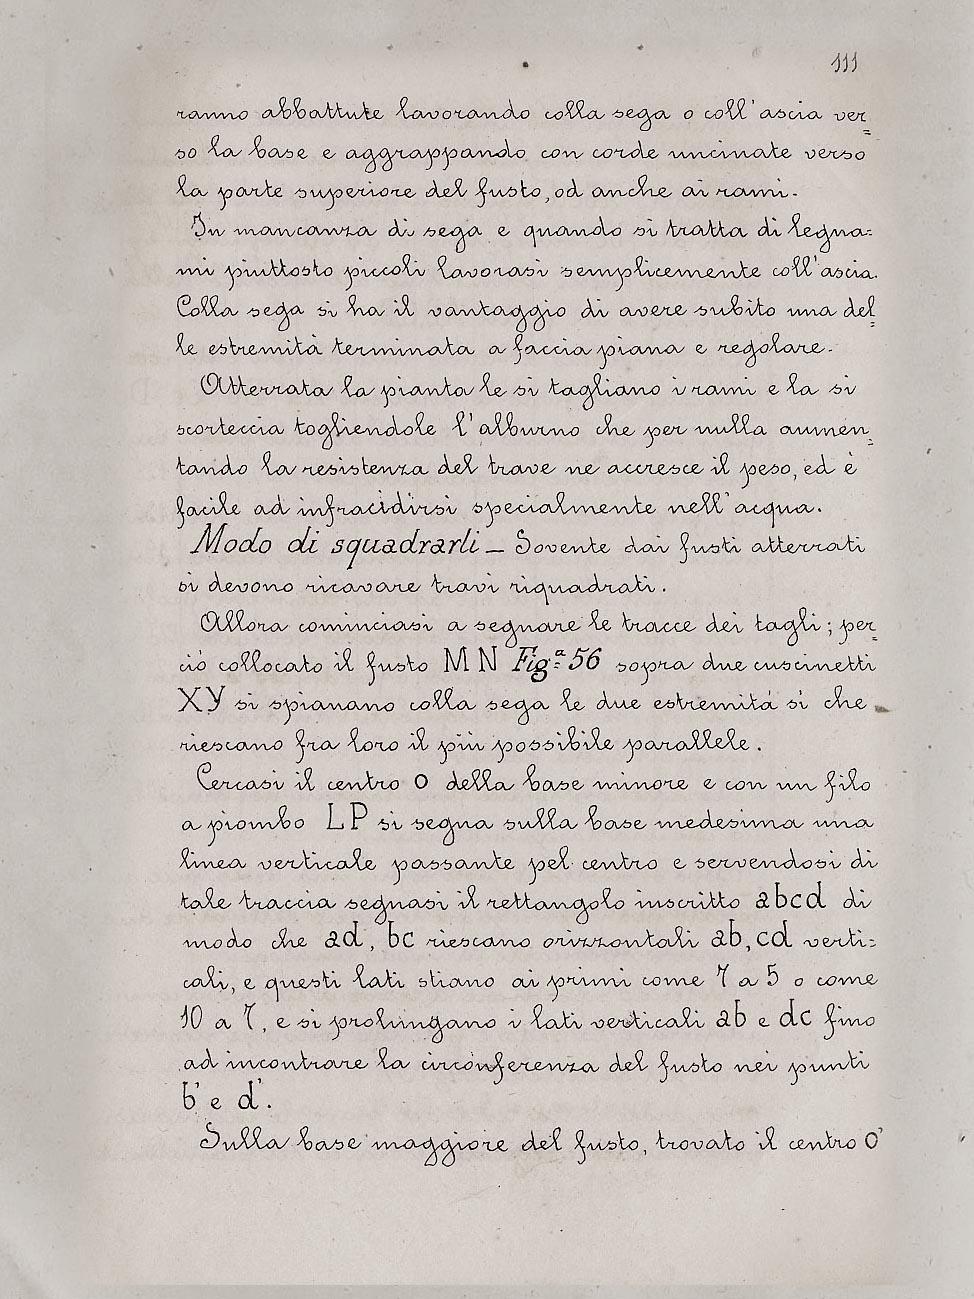 111
ranno abbattute lavorando colla sega o coll'ascia ver=
so la base e aggrappando con corde uncinate verso
la parte superiore del fusto, od anche ai rami.
In mancanza di sega e quando si tratta di legna=
mi piuttosto piccoli lavorasi semplicemente coll'ascia.
Colla sega si ha il vantaggio di avere subito una del=
le estremità terminata a faccia piana e regolare.
Atterrata la pianta le si tagliano i rami e la si
scorteccia togliendole l'alburno che per nulla aumen=
tando la resistenza del trave ne accresce il peso, ed è
facile ad infracidirsi specialmente nell'acqua.
Modo di squadrarli _ Sovente dai fusti atterrati
si devono ricavare travi riquadrati.
Allora cominciasi a segnare le tracce dei tagli; per=
ciò collocato il fusto M N Fig.ª 56 sopra due cuscinetti
XY si spianano colla sega le due estremità sì che
riescano fra loro il più possibile parallele.
Cercasi il centro o della base minore e con un filo
a piombo LP si segna sulla base medesima una
linea verticale passante pel centro e servendosi di
tale traccia segnasi il rettangolo inscritto abcd di
modo che ad, bc riescano orizzontali ab, cd verti=
cali, e questi lati stiano ai primi come 7 a 5 o come
10 a 7, e si prolungano i lati verticali ab e dc fino
ad incontrare la circonferenza del fusto nei punti
b' e d'.
Sulla base maggiore del fusto, trovato il centro o'